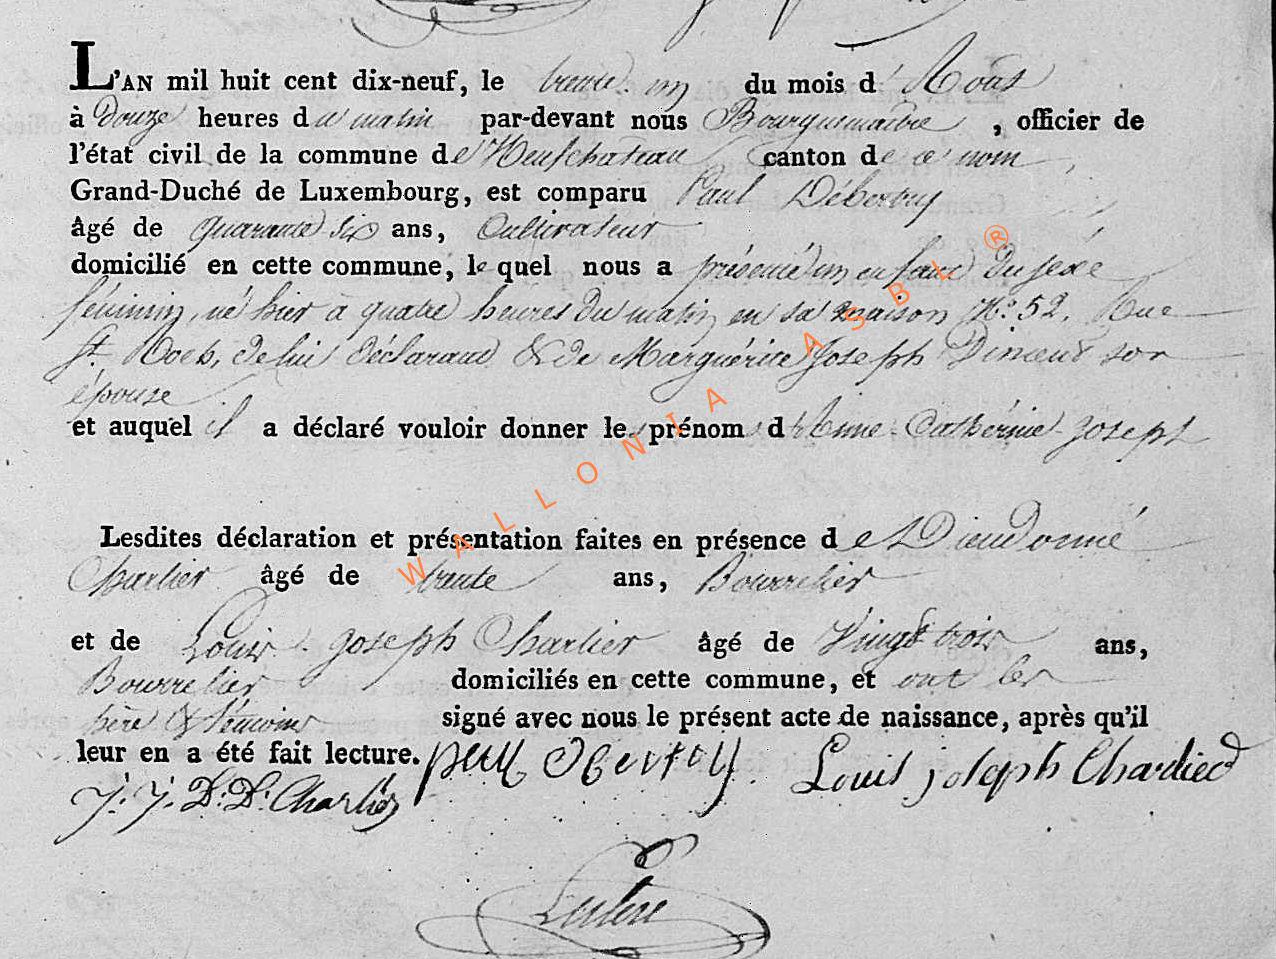 L'AN mil huit cent dix-neuf, le trente un du mois d'Août
à Douze heures du matin par-devant nous Bourguemaître, officier de
l'état civil de la commune de Neufchateau canton de ce nom,
Grand-Duché de Luxembourg, est comparu Paul Débertry
âgé de quarante six ans, Cultivateur
domicilié en cette commune, le quel nous a présenté un enfant du sexe
féminin, né hier à quatre heures du matin en sa maison N.° 52, Rue
St. Roch, de lui déclarant & de Marguérite Joseph Dinoeux son
épouse
et auquel il a déclaré vouloir donner les prénoms d'Anne Cathérine Joseph
Lesdites déclaration et présentation faites en présence de Dieudonné
Charlier âgé de trente ans, Bourrelier
et de Louis Joseph Charlier âgé de Vingt trois ans,
Bourrelier domiciliés en cette commune, et ont les
père & témoins signé avec nous le présent acte de naissance, après qu'il
leur en a été fait lecture. paul Charlier
J. J. D. D. Charlier Louis joseph Charlier
WALLONIA ASBL ®